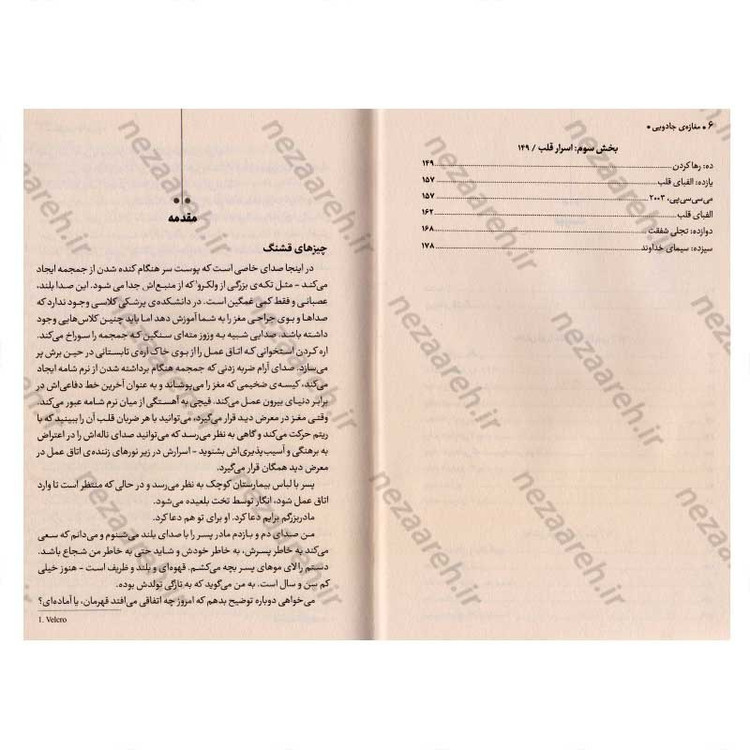 ۶ • مغازه‌ی جادویی •
بخش سوم: اسرار قلب / ۱۴۹
ده: رها کردن ۱۴۹
یازده: الفبای قلب ۱۵۷
می‌سی‌سی‌پی، ۲۰۰۳ ۱۵۷
الفبای قلب ۱۶۲
دوازده: تجلی شفقت ۱۶۸
سیزده: سیمای خداوند ۱۷۸
مقدمه
چیزهای قشنگ
در اینجا صدای خاصی است که پوست سر هنگام کنده شدن از جمجمه ایجاد
می‌کند - مثل تکه‌ی بزرگی از ولکرو¹ که از منبع‌اش جدا می شود. این صدا بلند،
عصبانی و فقط کمی غمگین است. در دانشکده‌ی پزشکی کلاسی وجود ندارد که
صداها و بوی جراحی مغز را به شما آموزش دهد اما باید چنین کلاس‌هایی وجود
داشته باشد. صدایی شبیه به وزوز مته‌ای سنگین که جمجمه را سوراخ می‌کند.
اره کردن استخوانی که اتاق عمل را از بوی خاک اره‌ی تابستانی در حین برش پر
می‌سازد. صدای آرام ضربه زدنی که جمجمه هنگام برداشته شدن از نرم شامه ایجاد
می‌کند، کیسه‌ی ضخیمی که مغز را می‌پوشاند و به عنوان آخرین خط دفاعی‌اش در
برابر دنیای بیرون عمل می‌کند. قیچی به آهستگی از میان نرم شامه عبور می‌کند.
وقتی مغز در معرض دید قرار می‌گیرد، می‌توانید با هر ضربان قلب آن را ببینید که با
ریتم حرکت می‌کند و گاهی به نظر می‌رسد که می‌توانید صدای ناله‌اش را در اعتراض
به برهنگی و آسیب‌پذیری‌اش بشنوید - اسرارش در زیر نورهای زننده‌ی اتاق عمل در
معرض دید همگان قرار می‌گیرد.
پسر با لباس بیمارستان کوچک به نظر می‌رسد و در حالی که منتظر است تا وارد
اتاق عمل شود، انگار توسط تخت بلعیده می‌شود.
مادربزرگم برایم دعا کرد. او برای تو هم دعا کرد.
من صدای دم و بازدم مادر پسر را با صدای بلند می‌شنوم و می‌دانم که سعی
می‌کند به خاطر پسرش، به خاطر خودش و شاید حتی به خاطر من شجاع باشد.
دستم را لای موهای پسر بچه می‌کشم. قهوه‌ای و بلند و ظریف است - هنوز خیلی
کم سن و سال است. به من می‌گوید که به تازگی تولدش بوده.
می‌خواهی دوباره توضیح بدهم که امروز چه اتفاقی می‌افتد قهرمان، یا آماده‌ای؟
1. Velcro
nezaareh.ir
nezaareh.ir
nezaareh.ir
nezaareh.ir
nezaareh.ir
nezaareh.ir